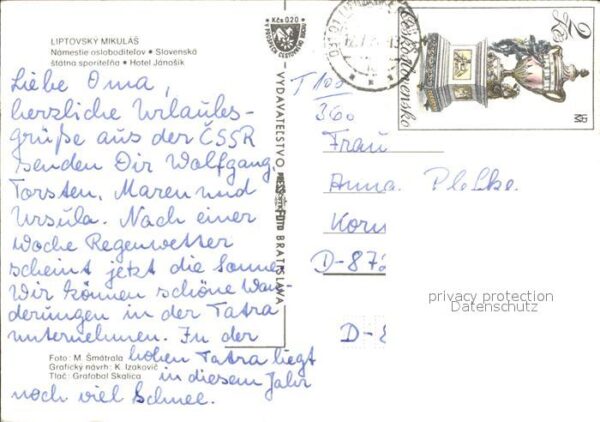 LIPTOVSKÝ MIKULÁŠ
Námestie osloboditeľov • Slovenská
štátna sporiteľňa • Hotel Jánošík
Liebe Oma,
herzliche Urlaubs-
grüße aus der ČSSR
senden Dir Wolfgang,
Torsten, Maren und
Ursula. Nach einer
Woche Regenwetter
scheint jetzt die Sonne.
Wir können schöne Wan
derungen in der Tatra
unternehmen. In der
hohen Tatra liegt
in diesem Jahr
noch viel Schnee.
Foto: M. Šmátrala
Grafický návrh: K. Izakovič
Tlač: Grafobal Skalica
Kčs 0,20
VYDAVATEĽSTVO
FOTO
BRATISLAVA
2 Kčs
Československo
Frau
Anna
Korn
D-872
D-
privacy protection
Datenschutz